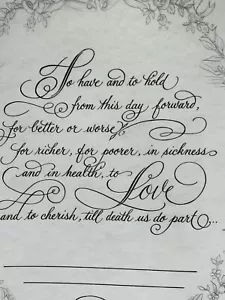 To have and to hold
from this day forward,
for better or worse,
for richer, for poorer, in sickness
and in health, to
Love
and to cherish, till death us do part...